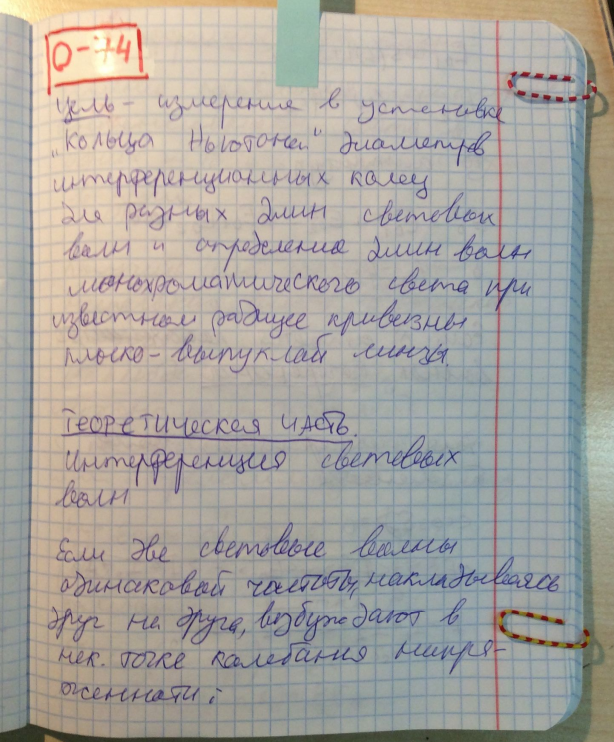 О-74
Цель - измерение в установке
"Кольца Ньютона" диаметров
интерференционных колец
для разных длин световых
волн и определение длин волн
монохроматического света при
известном радиусе кривизны
плоско-выпуклой линзы.
ТЕОРЕТИЧЕСКАЯ ЧАСТЬ.
Интерференция световых
волн
Если две световые волны
одинаковой частоты, накладываясь
друг на друга, возбуждают в
нек. точке колебания напря-
женности: